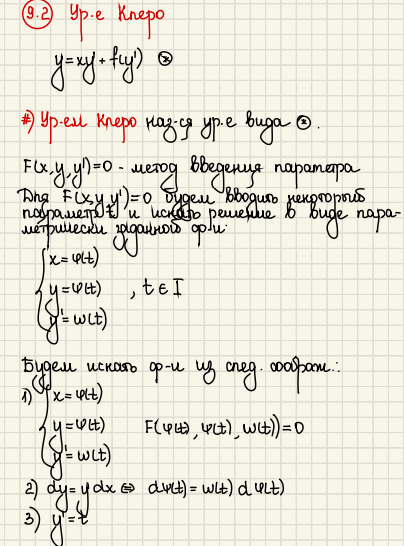 9.2 Ур-е Клеро
y = xy' + f(y') ⊛
#) Ур-ем Клеро наз-ся ур-е вида ⊛.
F(x, y, y') = 0 - метод введения параметра
Для F(x, y, y') = 0 будем вводить некоторый
параметр t и искать решение в виде пара-
метрически заданной ф-и:
x = φ(t)
y = ψ(t) , t ∈ I
y' = w(t)
Будем искать ф-и из след. соображ.:
1) x = φ(t)
y = ψ(t) F(φ(t), ψ(t), w(t)) = 0
y' = w(t)
2) dy = y dx ⇔ dψ(t) = w(t) dφ(t)
3) y' = t